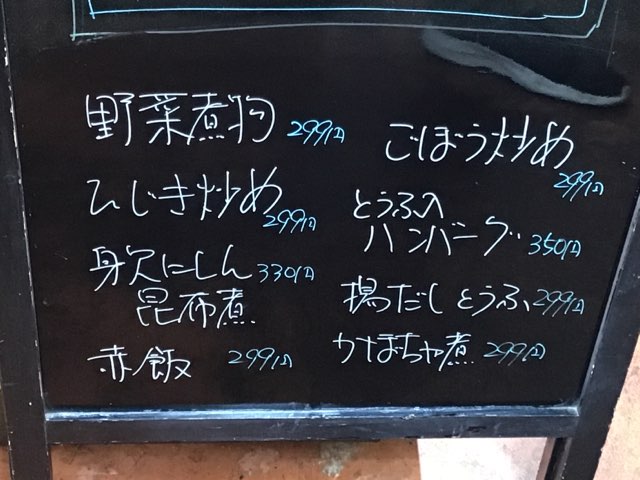 野菜煮物 299円
ひじき炒め
299円
身欠にしん 330円
昆布煮
赤飯 299円
ごぼう炒め
299円
とうふ入
ハンバーグ 350円
揚だしとうふ 299円
かぼちゃ煮 299円